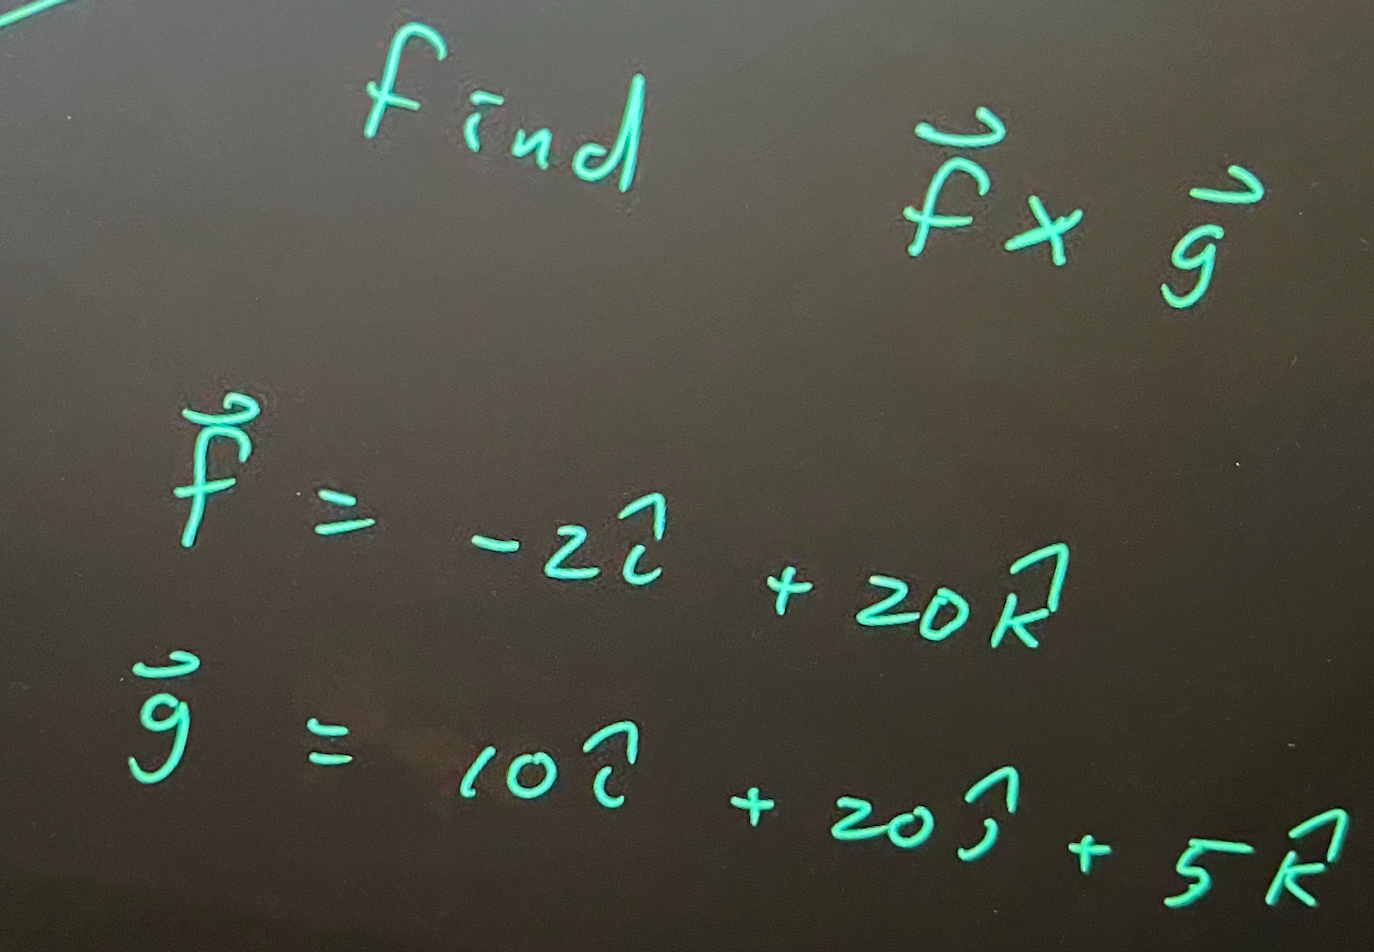 find f⃗ × g⃗
f⃗ = -2î + 20k̂
g⃗ = 10î + 20ĵ + 5k̂